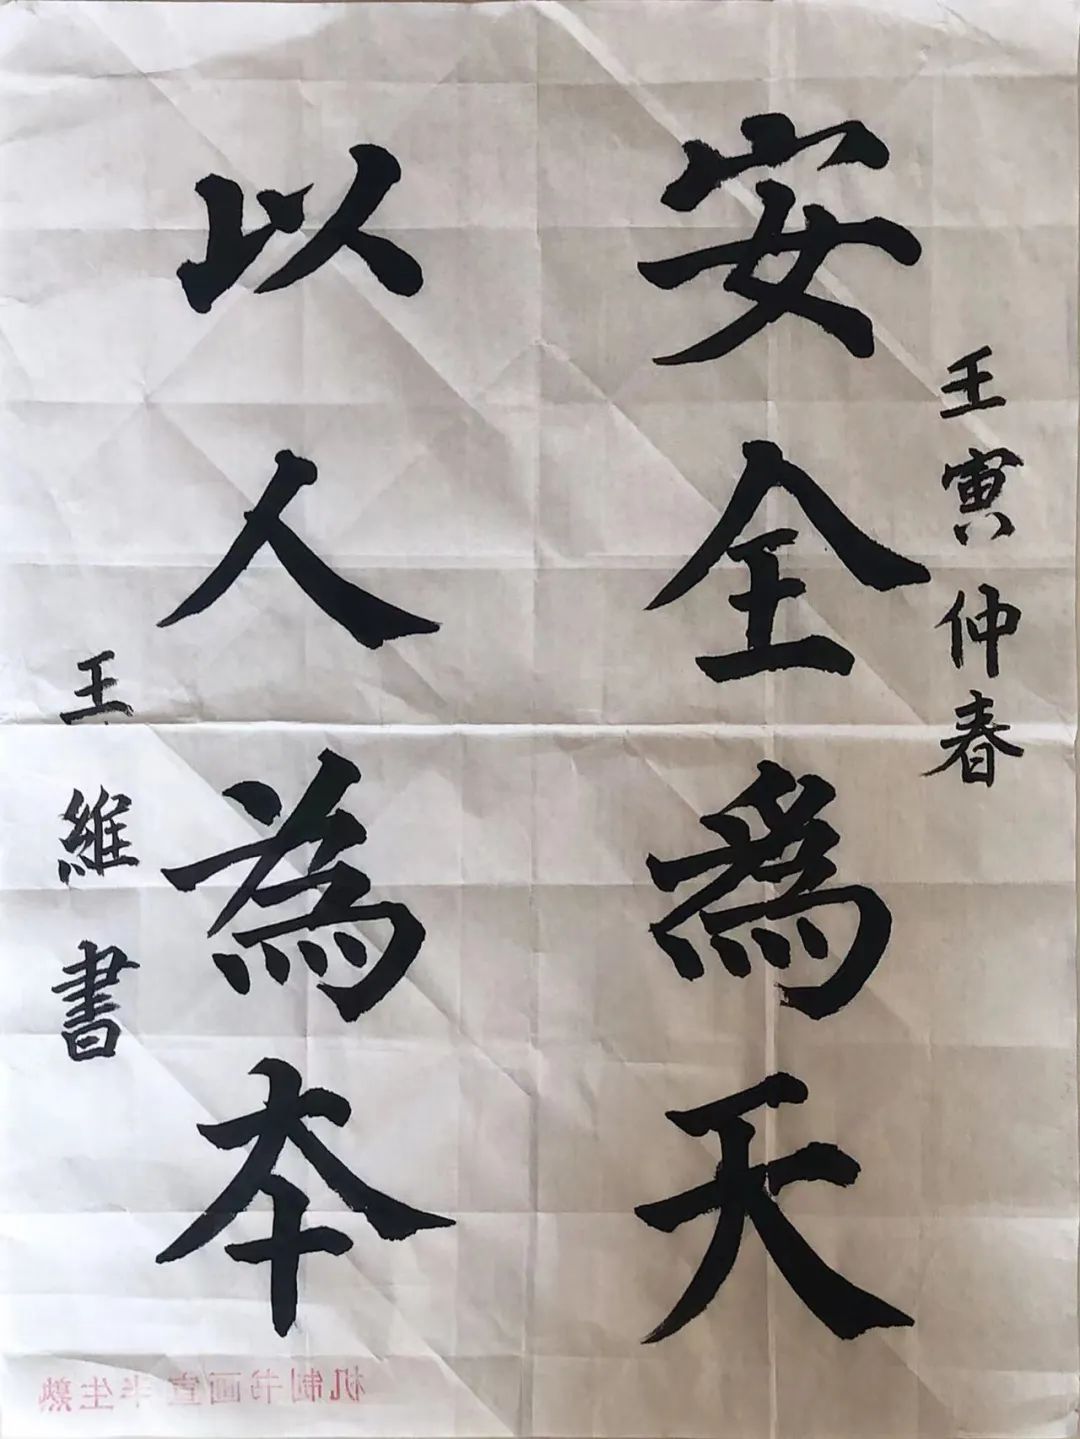 壬寅仲春
安全為天
以人為本
王維書
机制书画宣半生熟